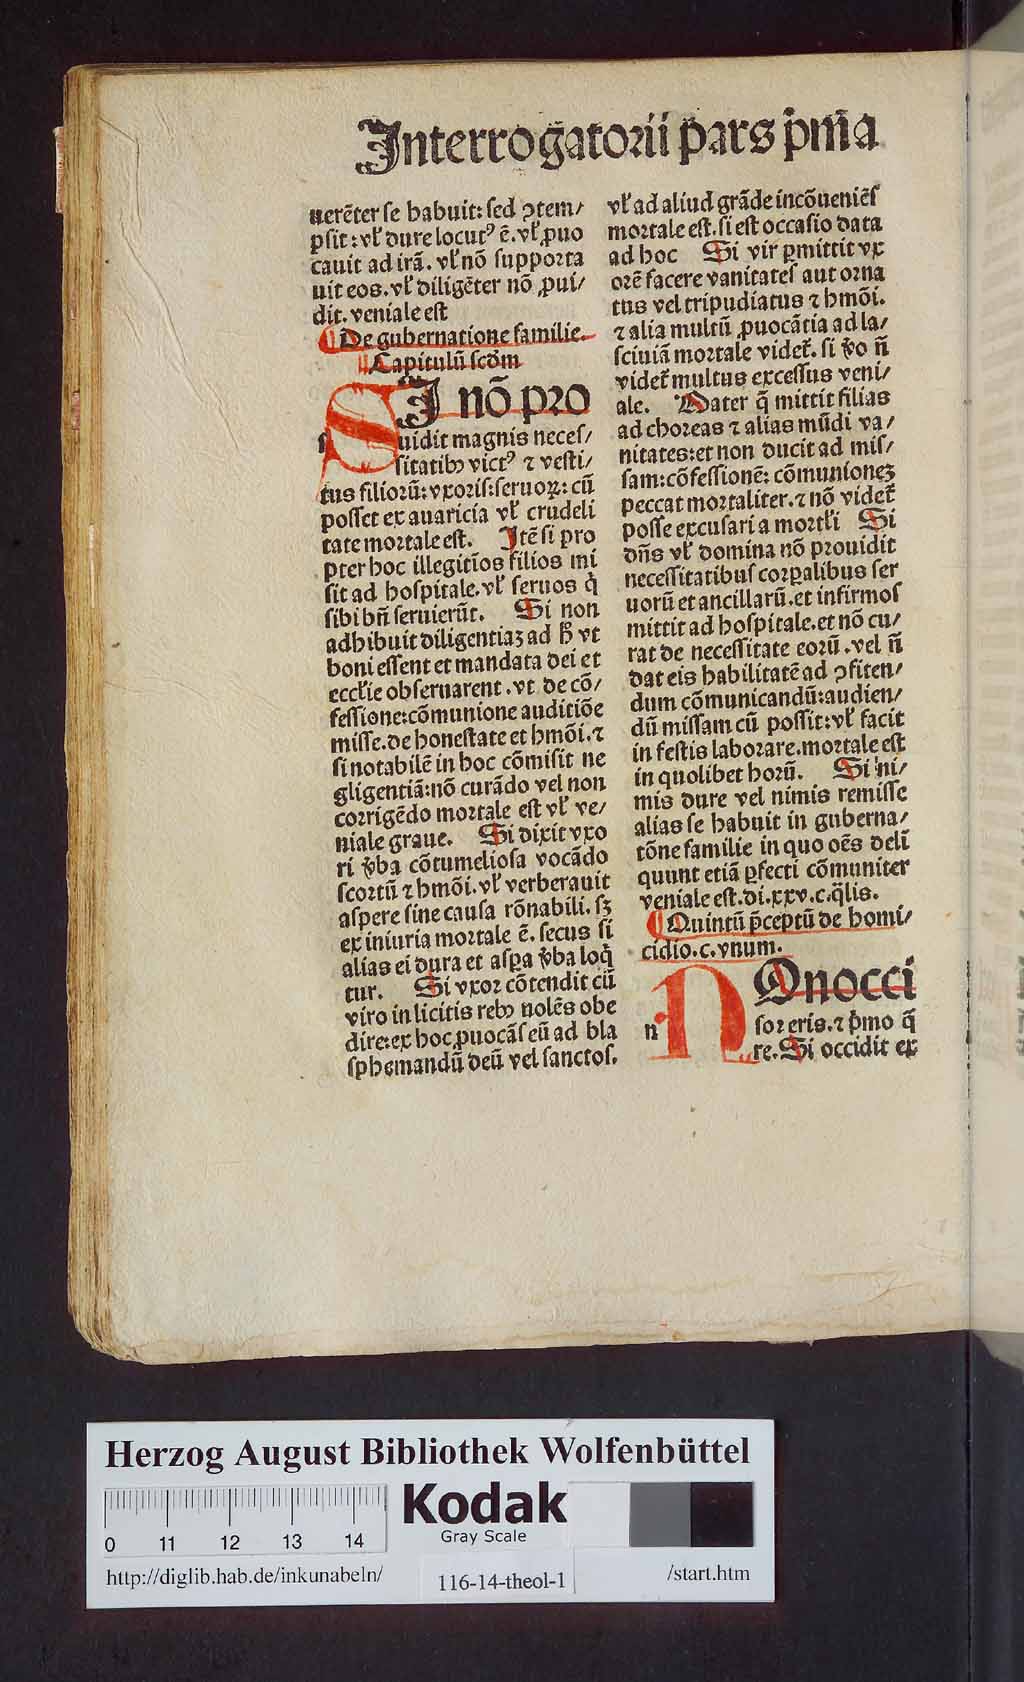 Interrogatorii pars pm̄a
uerēter se habuit: sed ꝯtem/
psit: vl̕ dure locutꝰ ē. vl̕ ꝓuo
cauit ad irā. vl̕ nō supporta
uit eos. vl̕ diligēter nō ꝓui/
dit. veniale est
De gubernatione familie.
Capitulū scd̄m
SI nō pro
uidit magnis neces/
sitatibꝫ victꝰ ⁊ vesti/
tus filiorū: vxoris: seruoꝝ: cū
posset ex auaricia vl̕ crudeli
tate mortale est. Itē si pro
pter hoc illegitīos filios mi
sit ad hospitale. vl̕ seruos q̇
sibi bn̄ seruierūt. Si non
adhibuit diligentiaꝫ ad ꝙ̄ vt
boni essent et mandata dei et
eccl̕ie obseruarent. vt de cō/
fessione: cōmunione auditiōe
misse. de honestate et hmōi. ⁊
si notabilē in hoc cōmisit ne
gligentiā: nō curādo vel non
corrigēdo mortale est vl̕ ve/
niale graue. Si dixit vxo
ri v̄ba cōtumeliosa vocādo
scortū ⁊ hmōi. vl̕ verberauit
aspere sine causa rōnabili. sꝫ
ex iniuria mortale ē. secus si
alias ei dura et aspa v̄ba loq̇
tur. Si vxor cōtendit cū
viro in licitis rebꝫ nolēs obe
dire: ex hoc ꝓuocās eū ad bla
sphemandū deū vel sanctos.
vl̕ ad aliud grāde incōueniēs
mortale est. si est occasio data
ad hoc Si vir ꝑmittit vx
orē facere vanitates aut orna
tus vel tripudiatus ⁊ hmōi.
⁊ alia multū ꝓuocātia ad la/
sciuiā mortale videt̄. si v̄o n̄
videt̄ multus excessus veni/
ale. Mater q̄ mittit filias
ad choreas ⁊ alias mūdi va/
nitates: et non ducit ad mis/
sam: cōfessionē: cōmunioneꝫ
peccat mortaliter. ⁊ nō videt̄
posse excusari a mortl̕i Si
dn̄s vl̕ domina nō prouidit
necessitatibus corꝑalibus ser
uorū et ancillarū. et infirmos
mittit ad hospitale. et nō cu/
rat de necessitate eorū. vel n̄
dat eis habilitatē ad ꝯfiten/
dum cōmunicandū: audien/
dū missam cū possit: vl̕ facit
in festis laborare. mortale est
in quolibet horū. Si ni/
mis dure vel nimis remisse
alias se habuit in guberna/
tōne familie in quo oēs deli
quunt etiā ꝑfecti cōmuniter
veniale est. di. xxv. c. q̄lis.
Quintū p̄ceptū de homi/
cidio. c. vnum.
n NOnocci
sor eris. ⁊ p̄mo q̄
re. Si occidit ex
Herzog August Bibliothek Wolfenbüttel
Kodak
Gray Scale
0 11 12 13 14
http://diglib.hab.de/inkunabeln/ 116-14-theol-1 /start.htm